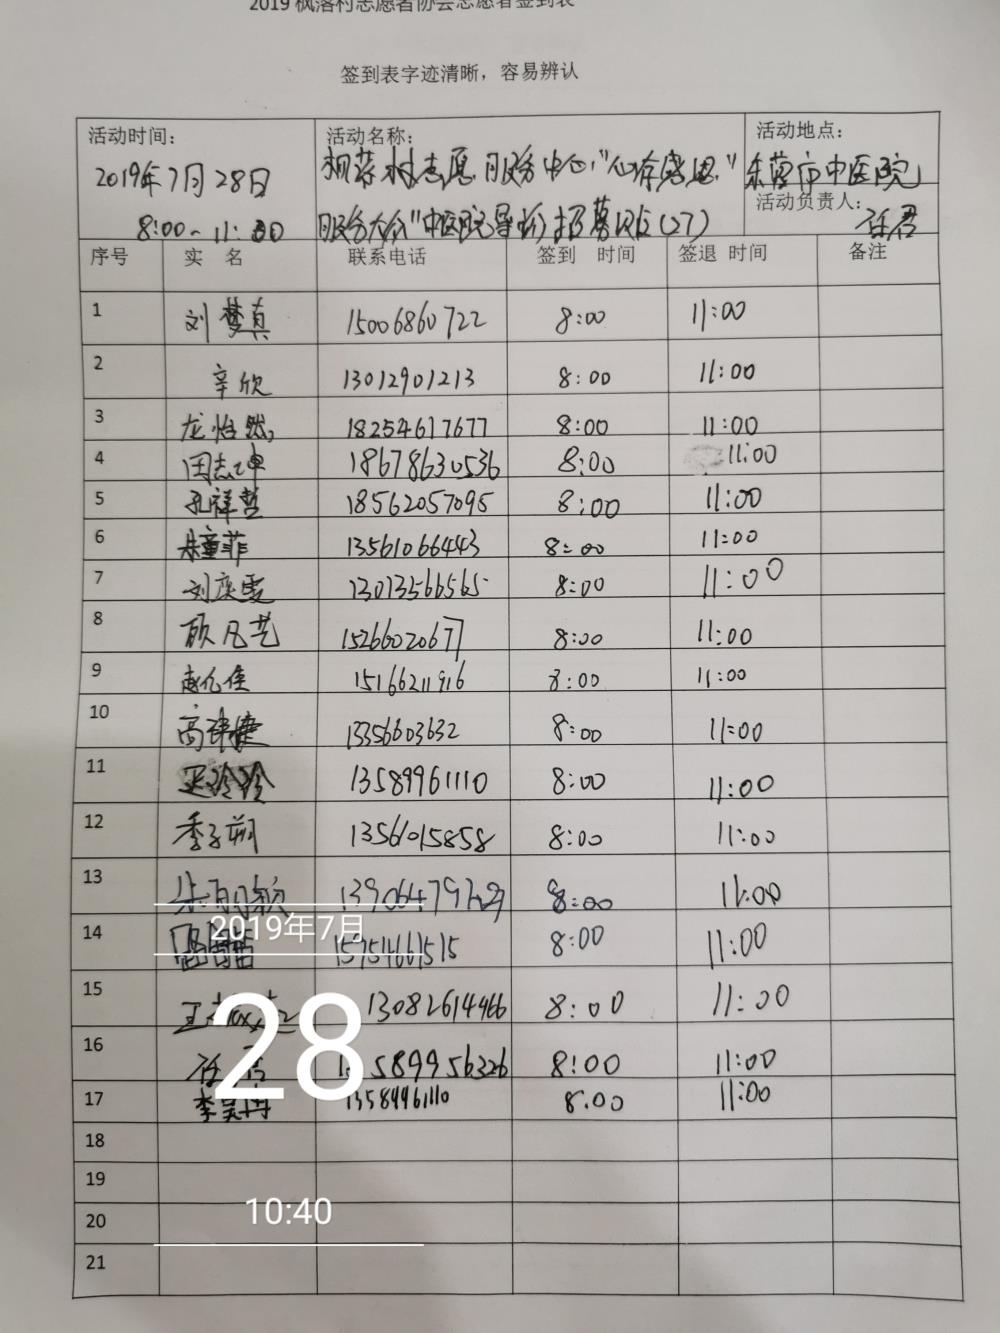 2019 枫落村志愿者协会志愿者签到表
签到表字迹清晰，容易辨认
活动时间： 活动名称： 活动地点：
2019年7月28日 志愿服务中心"心存感恩" 东营市中医院
活动负责人：
8:00~11:00 服务大众"中医院导诊招募 (27) 任君
序号 实 名 联系电话 签到 时间 签退 时间 备注
1 刘梦真 15006860722 8:00 11:00
2 辛欣 13012901213 8:00 11:00
3 龙怡然 18254617677 8:00 11:00
4 田志坤 18678630536 8:00 11:00
5 孔祥哲 18562057095 8:00 11:00
6 朱童菲 13561066443 8:00 11:00
7 刘奕雯 13013566565 8:00 11:00
8 顾凡艺 15266020677 8:00 11:00
9 赵亿佳 15166211916 8:00 11:00
10 高捷 13356603632 8:00 11:00
11 玲玲 13589961110 8:00 11:00
12 季子朔 13561015858 8:00 11:00
13 8:00 11:00
2019年7月
14 8:00 11:00
15 王 13082614466 8:00 11:00
28
16 任君 589956326 8:00 11:00
17 李昊 13589961110 8:00 11:00
18
19
20
10:40
21